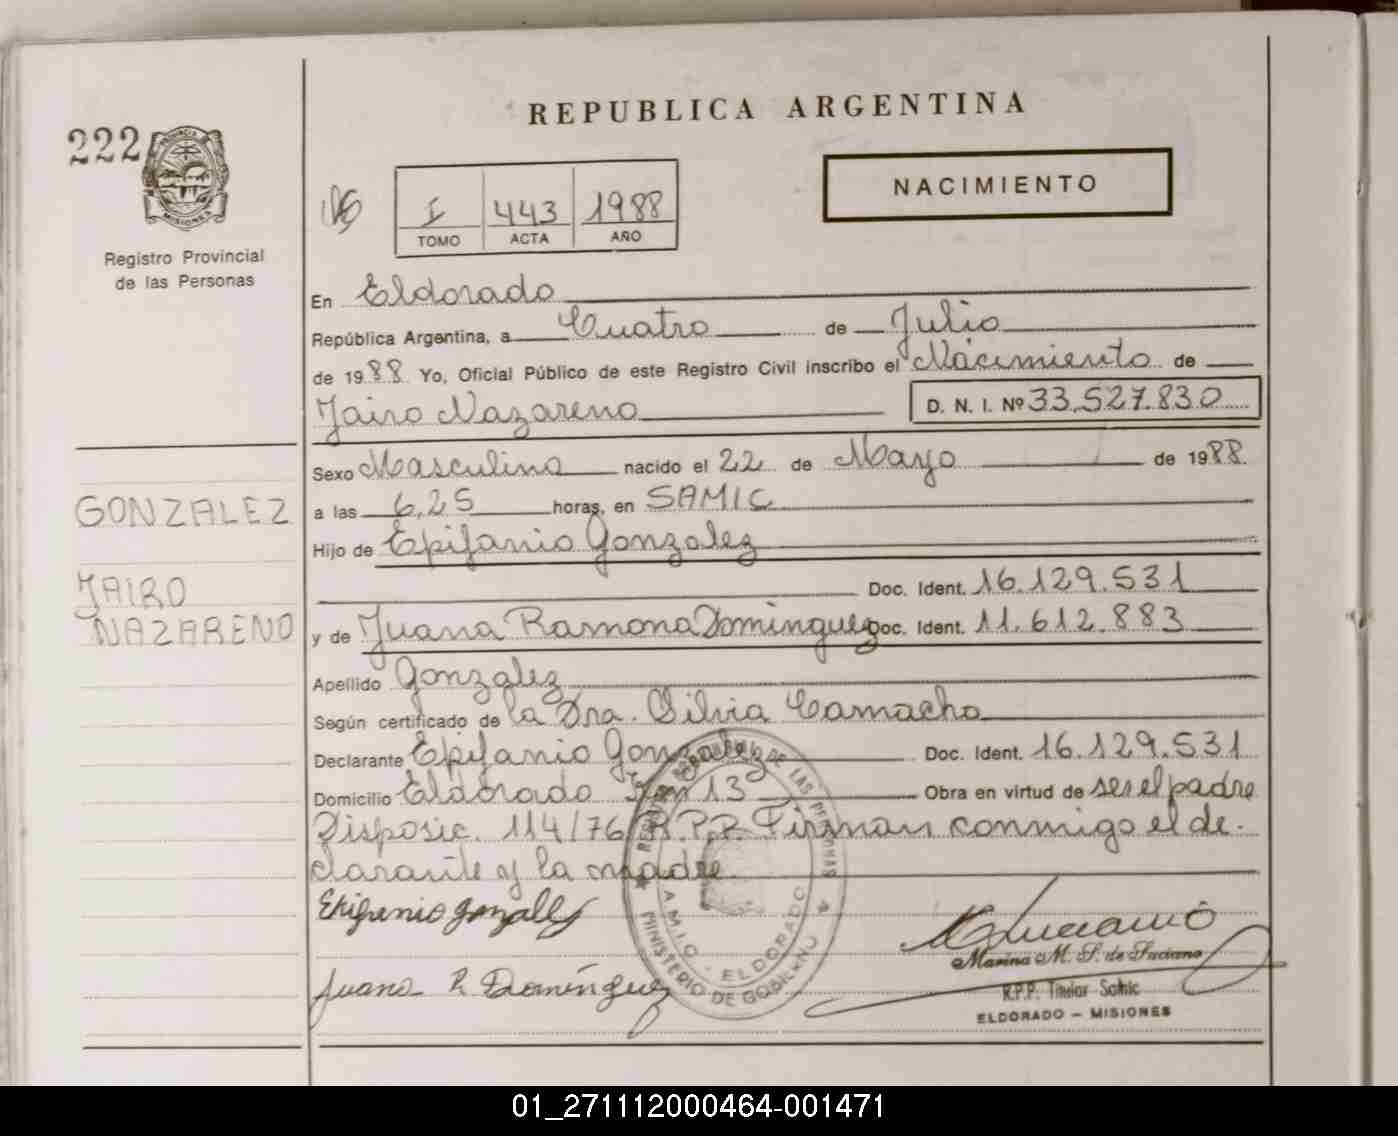 REPUBLICA ARGENTINA
222
PROVINCIA
MISIONES
Registro Provincial
de las Personas
NACIMIENTO
I 443 1988
TOMO ACTA AÑO
En Eldorado
República Argentina, a Cuatro de Julio
de 1988 Yo, Oficial Público de este Registro Civil inscribo el Nacimiento de
Jairo Nazareno D. N. I. Nº 33.527.830
Sexo Masculino nacido el 22 de Mayo de 1988
GONZALEZ
a las 6,25 horas, en SAMIC
Hijo de Epifanio Gonzalez
JAIRO
Doc. Ident. 16.129.531
NAZARENO
y de Juana Ramona Dominguez Doc. Ident. 11.612.883
Apellido Gonzalez
Según certificado de la Dra. Silvia Camacho
Declarante Epifanio Gonzalez Doc. Ident. 16.129.531
Domicilio Eldorado Km 13 Obra en virtud de ser el padre
Disposic. 114/76 R.P.P. Firman conmigo el de-
clarante y la madre.
DE LAS PERSONAS
MINISTERIO DE GOBIERNO
ELDORADO
Juana R. Domínguez
Marina M. S. de Luciano
R.P.P. Titular Samic
ELDORADO - MISIONES
01_271112000464-001471